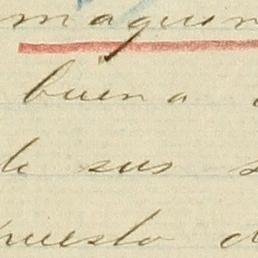 maquin
buena
de sus s
puesto d